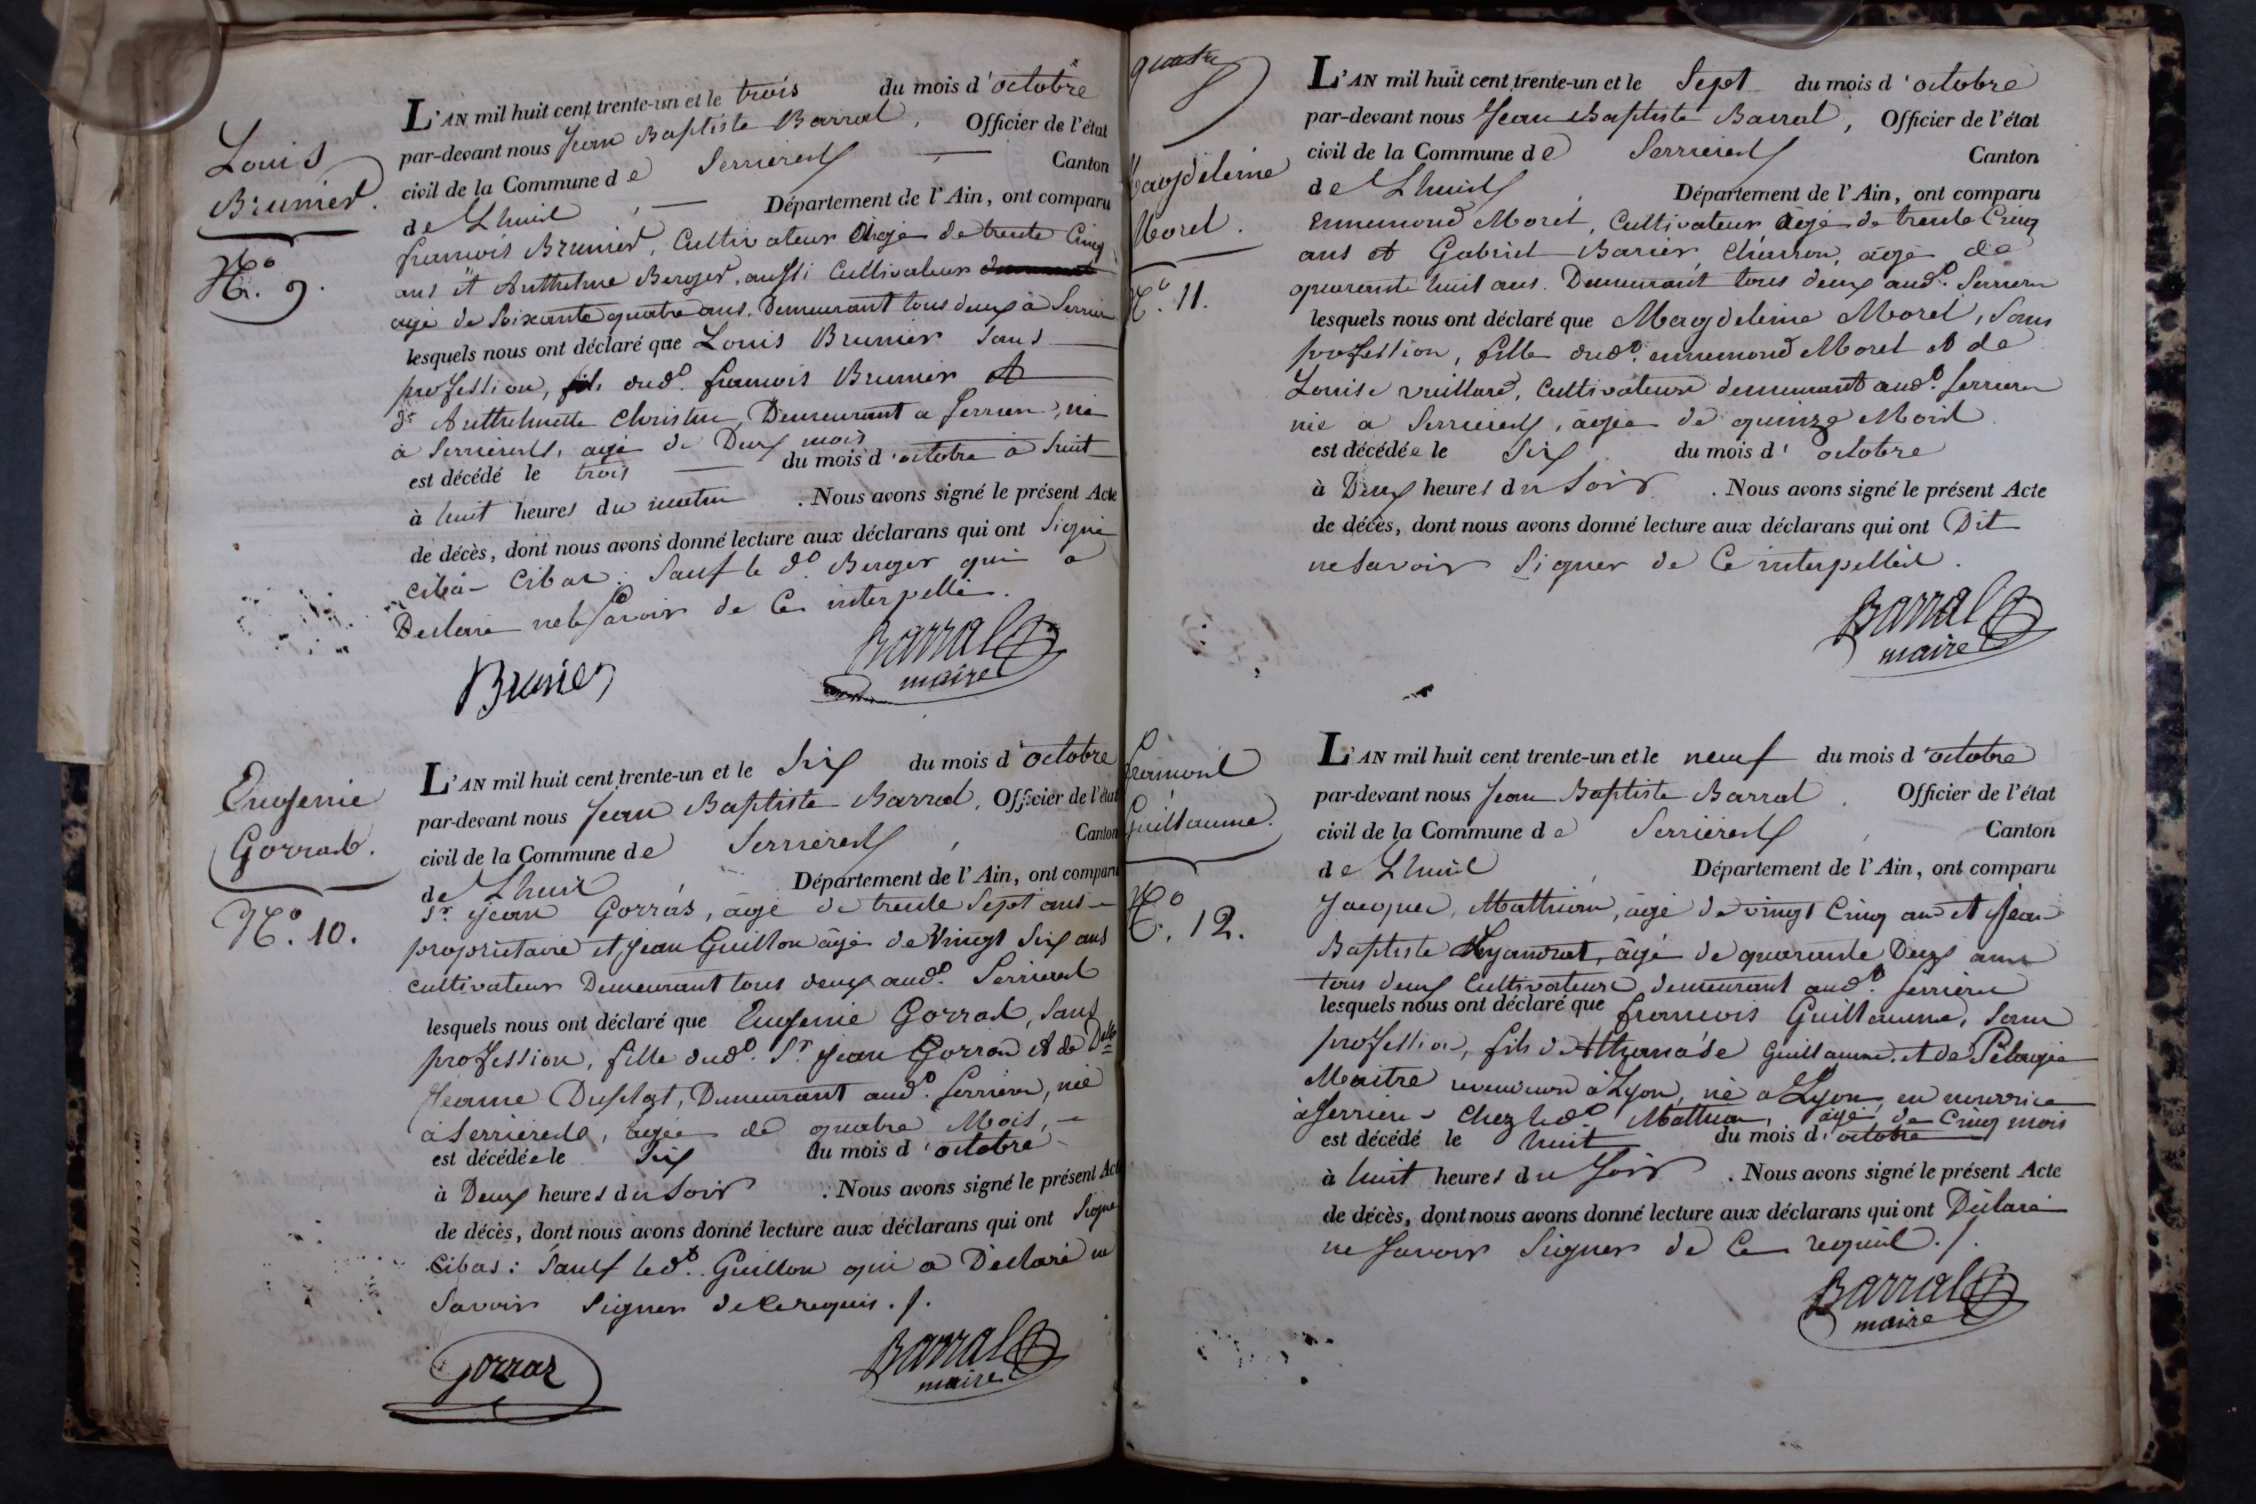 Louis
Brunier.
N.º 9.
L'AN mil huit cent trente-un et le trois du mois d'octobre
par-devant nous Jean Baptiste Barral, Officier de l'état
civil de la Commune de Serrieres Canton
de Lhuis, Département de l'Ain, ont comparu
francois Brunier, Cultivateur âgé de trente Cinq
ans et Anthelme Berger, aussi Cultivateur
agé de Soixante quatre ans, Demeurant tous deux à Serrier
lesquels nous ont déclaré que Louis Brunier Sans
profession, fils dudº. francois Brunier et
de Anthelmette Christin, Demeurant a Serrier, né
à Serrieres, agé de Deux mois
est décédé le trois du mois d'octobre à huit
à huit heures du matin. Nous avons signé le présent Acte
de décès, dont nous avons donné lecture aux déclarans qui ont Signé
Cibas. Sauf le dº. Berger qui a
Declaré ne le Savoir de Ce interpellé.
Brunier
Barral
maire
Eugenie
Gorras.
N.º 10.
L'AN mil huit cent trente-un et le Six du mois d'octobre
par-devant nous Jean Baptiste Barral, Officier de l'état
civil de la Commune de Serrieres, Canton
de Lhuis Département de l'Ain, ont comparu
Sr. Jean Gorras, âgé de trente Sept ans
proprietaire et Jean Guillon âgé de Vingt Six ans
cultivateur Demeurant tous deux audº. Serrieres
lesquels nous ont déclaré que Eugenie Gorras, Sans
profession, fille dudº. Sr. Jean Gorras et de Dlle
Jeanne Duplat, Demeurant audº. Serriere, née
à Serrieres, âgée de quatre Mois,
est décédée le Six du mois d'octobre
à Deux heures du Soir. Nous avons signé le présent Acte
de décès, dont nous avons donné lecture aux déclarans qui ont Signé
Cibas: Sauf ledº. Guillon qui a Déclaré ne
Savoir Signer de Ce requis./.
Gorras
Barral
maire
quatre
Magdeleine
Morel.
N.º 11.
L'AN mil huit cent trente-un et le Sept du mois d'octobre
par-devant nous Jean Baptiste Barral, Officier de l'état
civil de la Commune de Serrieres Canton
de Lhuis, Département de l'Ain, ont comparu
Ennemond Morel, Cultivateur âgé de trente Cinq
ans et Gabriel Barier, Charron, âgé de
quarante huit ans. Demeurant tous deux audº. Serriere
lesquels nous ont déclaré que Magdeleine Morel, Sans
profession, fille dudº. ennemond Morel et de
Louise vuillard, Cultivateurs demeurant audº. Serriere
née a Serrieres, âgée de quinze Mois
est décédée le Six du mois d'octobre
à Deux heures du Soir. Nous avons signé le présent Acte
de décès, dont nous avons donné lecture aux déclarans qui ont Dit
ne Savoir Signer de Ce interpellés.
Barral
maire
francois
Guillaume.
N.º 12.
L'AN mil huit cent trente-un et le neuf du mois d'octobre
par-devant nous Jean Baptiste Barral, Officier de l'état
civil de la Commune de Serrieres, Canton
de Lhuis, Département de l'Ain, ont comparu
Jacques, Mathieu, âgé de vingt Cinq ans et Jean
Baptiste âgé de quarante Deux ans
tous deux Cultivateurs demeurant audº. Serriere
lesquels nous ont déclaré que francois Guillaume, Sans
profession, fils de Athanase Guillaume et de Pelagie
Maitre à Lyon, né a Lyon, en nourrice
à Serriere Chez ledº. Mathieu, agé de Cinq mois
est décédé le huit du mois d'octobre
à huit heures du Soir. Nous avons signé le présent Acte
de décès, dont nous avons donné lecture aux déclarans qui ont Déclaré
ne Savoir Signer de Ce requis./.
Barral
maire